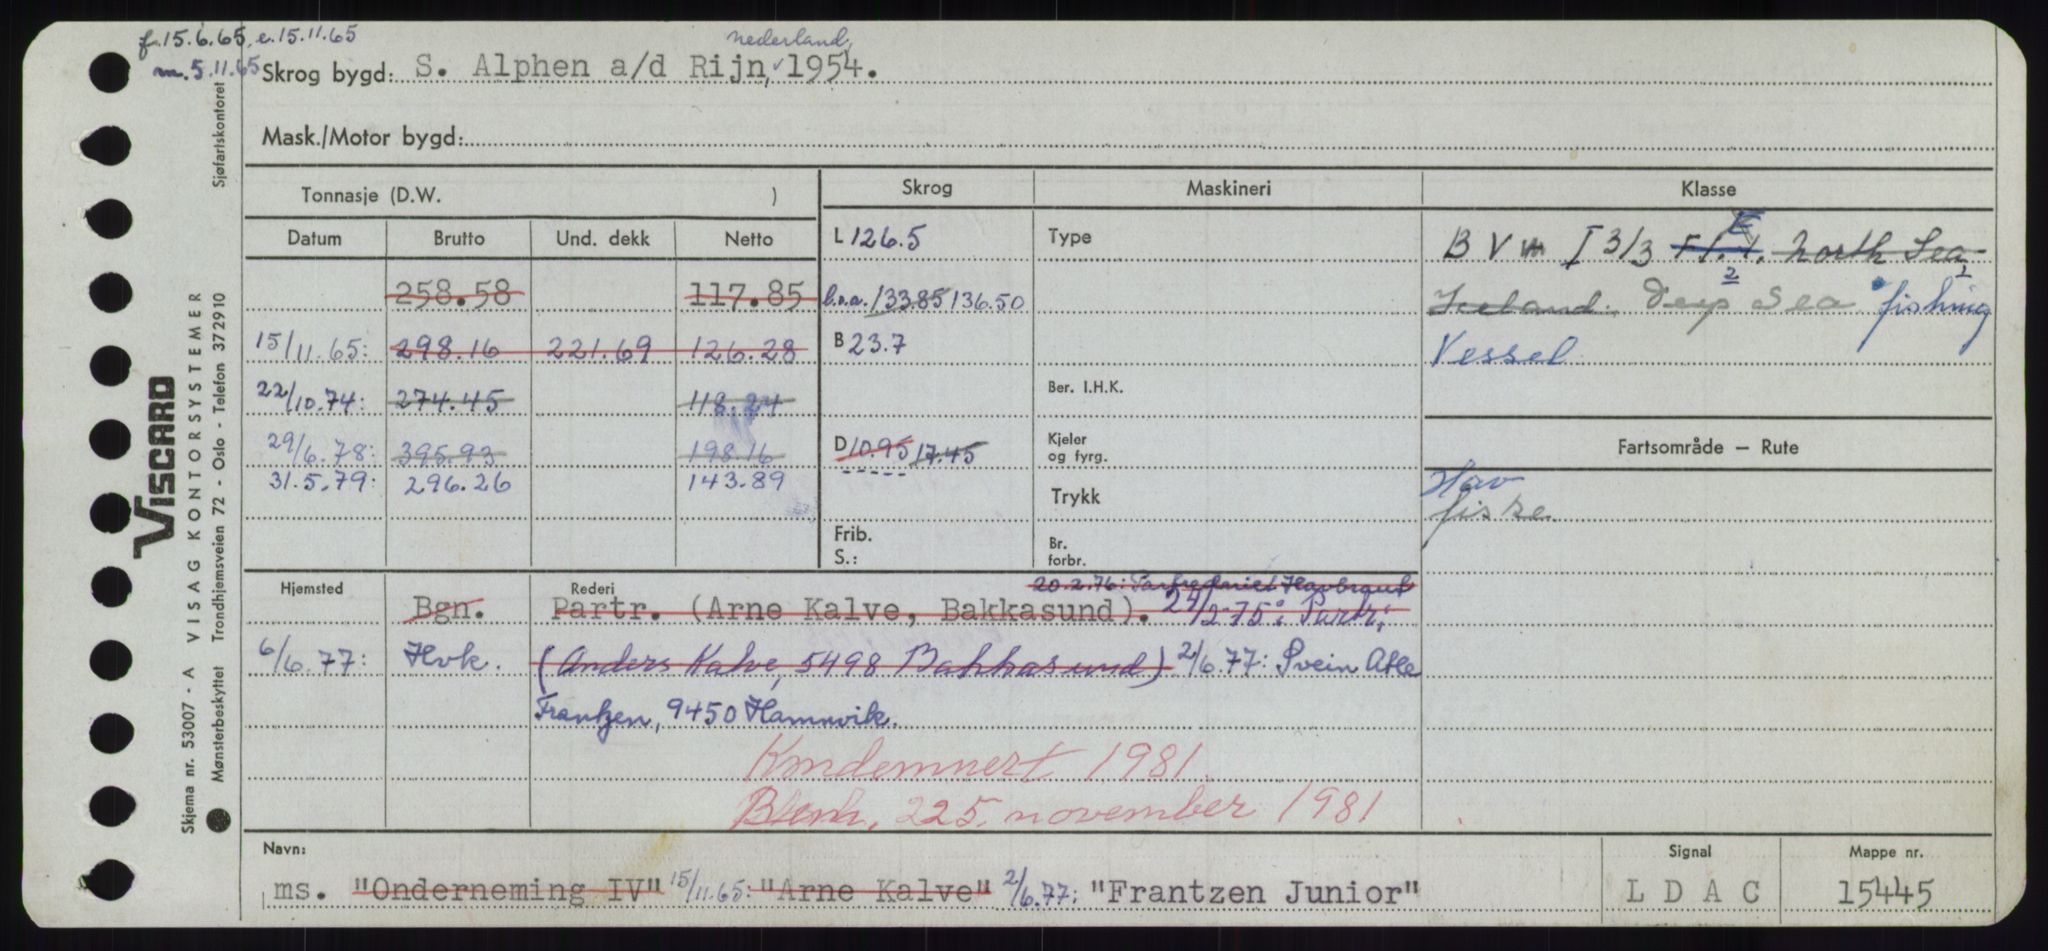 f. 15.6.65, e. 15.11.65
m. 5.11.65
nederland,
Skrog bygd: S. Alphen a/d Rijn, 1954.
Mask./Motor bygd:
Tonnasje (D.W. )
Skrog
Maskineri
Klasse
Datum
Brutto
Und. dekk
Netto
258.58 117.85
15/11.65: 298.16 221.69 126.28
22/10.74: 274.45 118.24
29/6.78: 395.93 198.16
31.5.79: 296.26 143.89
L 126.5
l.o.a. 133.85 136.50
B 23.7
D 10.95 17.45
Frib.
S.:
Type
Ber. I.H.K.
Kjeler
og fyrg.
Trykk
Br.
forbr.
B V m I 3/3 North Sea
Iceland. Deep Sea fishing
Vessel
Fartsområde – Rute
Hav
fiske
Hjemsted
Rederi
20.2.76: Partrederiet Havbraut
Bgn. Partr. (Arne Kalve, Bakkasund). 24/2-75: Partr.
6/6.77: Hvk. (Anders Kalve, 5498 Bakkasund) 2/6.77: Svein Atle
Frantzen, 9450 Hamnvik.
Kondemnert 1981.
november 1981
Navn:
Signal
Mappe nr.
ms. "Onderneming IV" 15/11.65: "Arne Kalve" 2/6.77: "Frantzen Junior"
L D A C
15445
VISCARD
Skjema nr. 53007 - A VISAG KONTORSYSTEMER
Mønsterbeskyttet Trondhjemsveien 72 - Oslo - Telefon 372910 Sjøfartskontoret